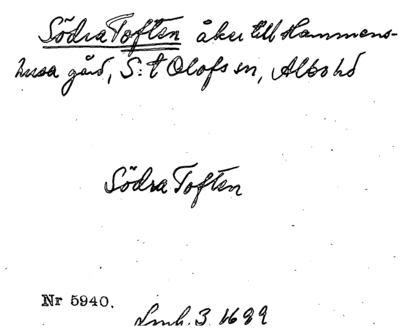 Södra Toften åker till Hammens-
husa gård, S:t Olofs sn, Albo hd
Södra Toften
Nr 5940.
Lmh. 3. 1689